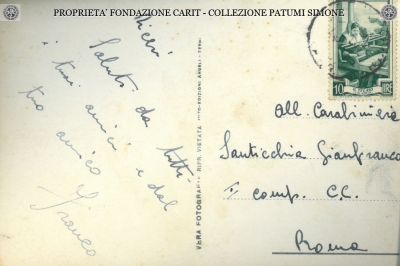 PROPRIETA' FONDAZIONE CARIT - COLLEZIONE PATUMI SIMONE
Saluti da tutti
i tuoi amici e dal
tuo amico
Franco
VERA FOTOGRAFIA RIPR. VIETATA
EDIZIONI ANGELI - TERNI
10 LIRE
All Carabiniere
Santicchia Gianfranco
comp. C.C.
Roma